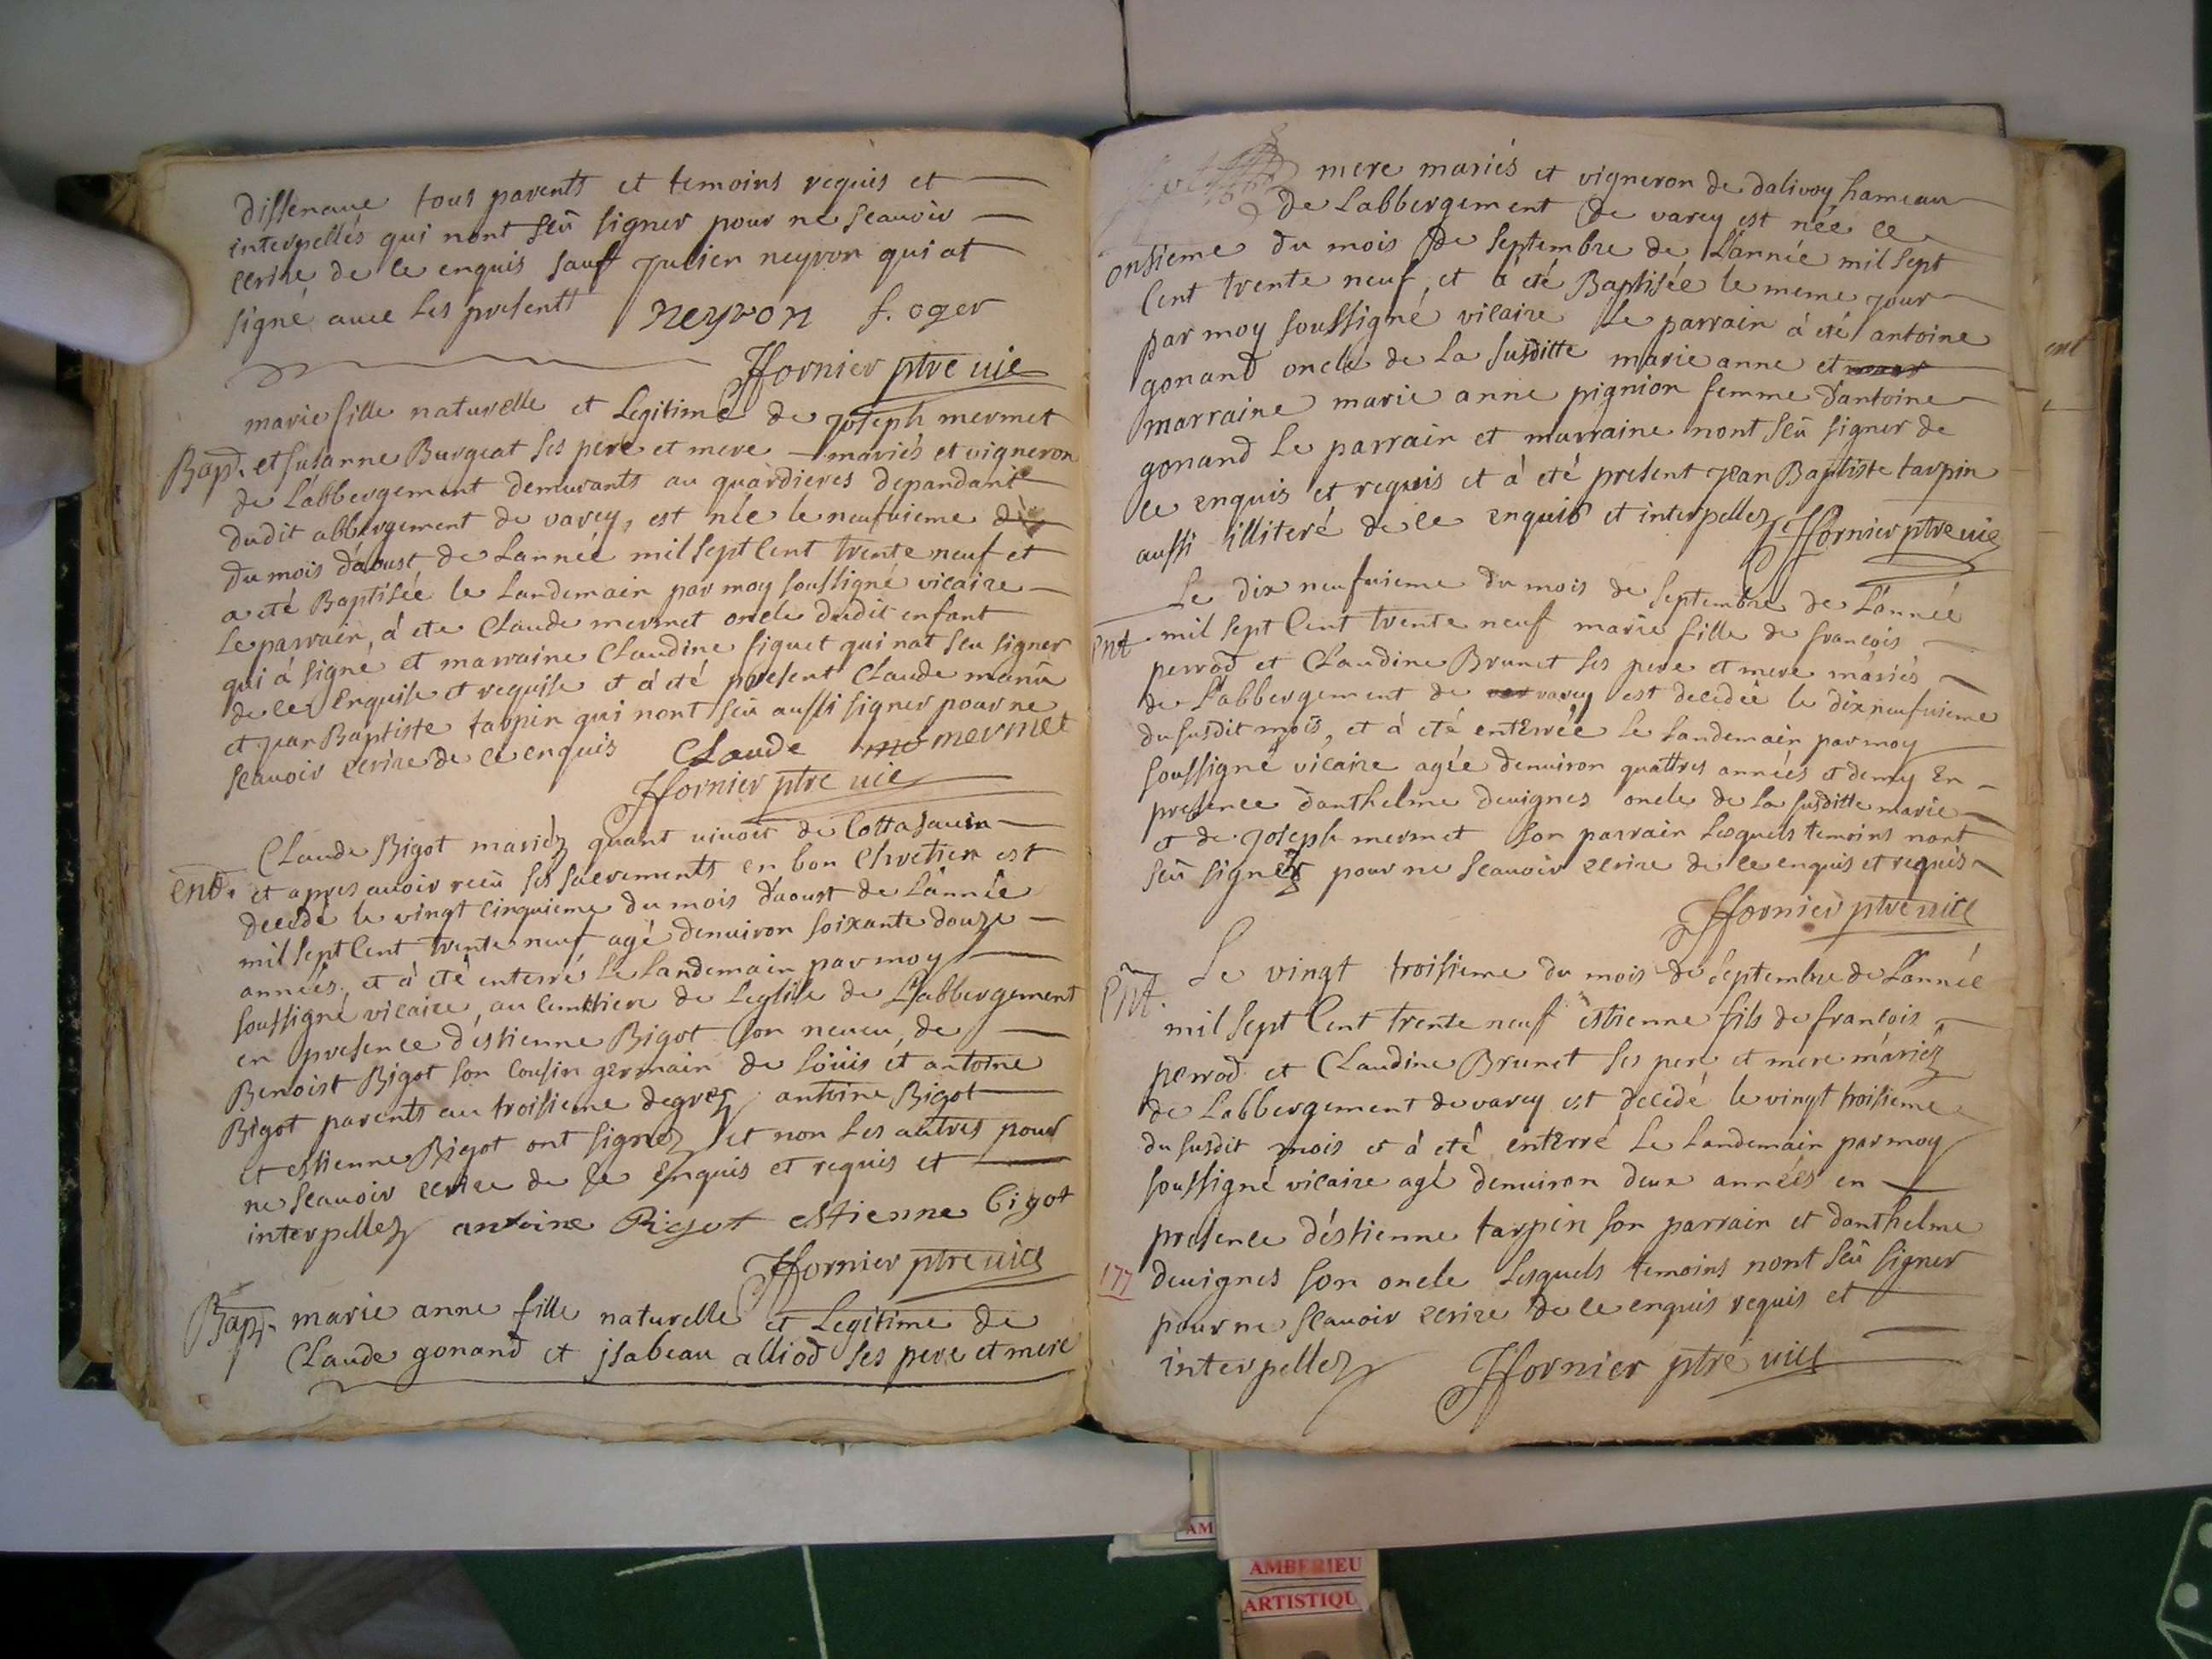 dissenave tous parents et temoins requis et
interpellés qui nont seû signer pour ne scauoir
ecrire de ce enquis sauf julien neyron qui at
signé auec les presents neyron f. oger
ffornier ptre vic
marie fille naturelle et legitime de joseph mermet
Bap. et susanne Burgeat ses pere et mere mariés et vigneron
de l'abbergement demeurants au quardieres depandante
dudit abbergement de varey, est née le neufuieme
du mois d'aoust de l'année mil sept cent trente neuf et
a eté Baptisée le landemain par moy soussigné vicaire
le parrain, à ete claude mermet oncle dudit enfant
qui à signé et marraine claudine siguet qui nat seu signer
de ce enquise et requise et à eté present claude
et jean Baptiste tarpin qui nont seu aussi signer pour ne
scauoir ecrire de ce enquis claude mermet
ffornier ptre vic
claude Bigot mariéz quant viuoit de cottasauin
ent. et apres auoir reçu ses sacrements en bon chretien est
decede le vingt cinquieme du mois d'aoust de l'année
mil sept cent trente neuf agé denuiron soixante douze
années, et à été enterré le landemain par moy
soussigné vicaire, au cimttiere de leglise de l'abbergement
en presence d'estienne Bigot son neueu, de
Benoist Bigot son cousin germain de loüis et antoine
Bigot parents au troisieme degrez antoine Bigot
et estienne Bigot ont signez et non les autres pour
ne scauoir ecrire de ce enquis et requis et
interpellez antoine Bigot estienne bigot
ffornier ptre vic
Bap. marie anne fille naturelle et legitime de
claude gonand et jsabeau alliod ses pere et mere
mere mariés et vigneron de dalivoy hameau
de labbergement de varey est née le
onsieme du mois de septembre de l'année mil sept
cent trente neuf, et à eté Baptisée le meme jour
par moy soussigné vicaire le parrain à eté antoine
gonand oncle de la susditte marie anne et
marraine marie anne pignion femme d'antoine
gonand le parrain et marraine nont seû signer de
ce enquis et requis et à eté present jean Baptiste tarpin
aussi illiteré de ce enquis et interpellez ffornier ptre vic
Le dix neufuieme du mois de septembre de l'année
ent mil sept cent trente neuf marie fille de francois
perrod et claudine Brunet ses pere et mere mariés
de l'abbergement de varey est decedée le dix neufuieme
du susdit mois, et à eté enterrée le landemain par moy
soussigné vicaire agée denuiron quattres années et demy en
presence d'anthelme deuignes oncle de la susditte marie
et de joseph mermet son parrain lesquels temoins nont
seû signer pour ne scauoir ecrire de ce enquis et requis
ffornier ptre vic
ent. Le vingt troisieme du mois de septembre de l'année
mil sept cent trente neuf estienne fils de francois
perrod et claudine Brunet ses pere et mere mariéz
de l'abbergement de varey est decédé le vingt troisieme
du susdit mois et à eté enterré le landemain par moy
soussigné vicaire agé denuiron deux années en
presence d'éstienne tarpin son parrain et d'anthelme
177 deuignes son oncle lesquels temoins nont seû signer
pour ne scauoir ecrire de ce enquis requis et
interpellez ffornier ptre vic
ent
AM
AMBERIEU
ARTISTIQU